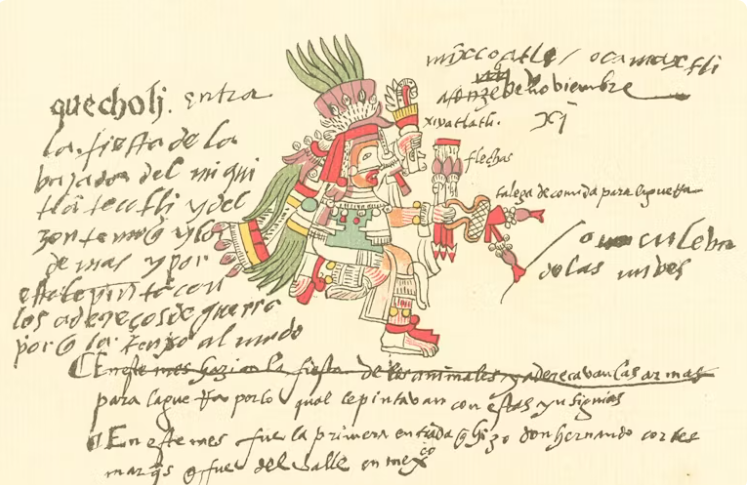 quecholi. entra
la fiesta de la
bajada del miqui
tlātecotli y del
zontemoq̄ y lo
de mas y por
esto le pintā con
los adereços de guerra
por q̄ la truxo al mūdo
mixcoatle / o camaxtli
a onze de noviembre
XI
xiyatlatli.
flechas
talega de comida para la guerra
o culebra
de las nubes
En este mes hazian la fiesta de los animales y adereçavan las armas
para la guerra por lo qual le pintavan con estas ynsignias
En este mes fue la primera entrada q̄ hizo don hernando cortes
marq̄s q̄ fue del valle en mexco